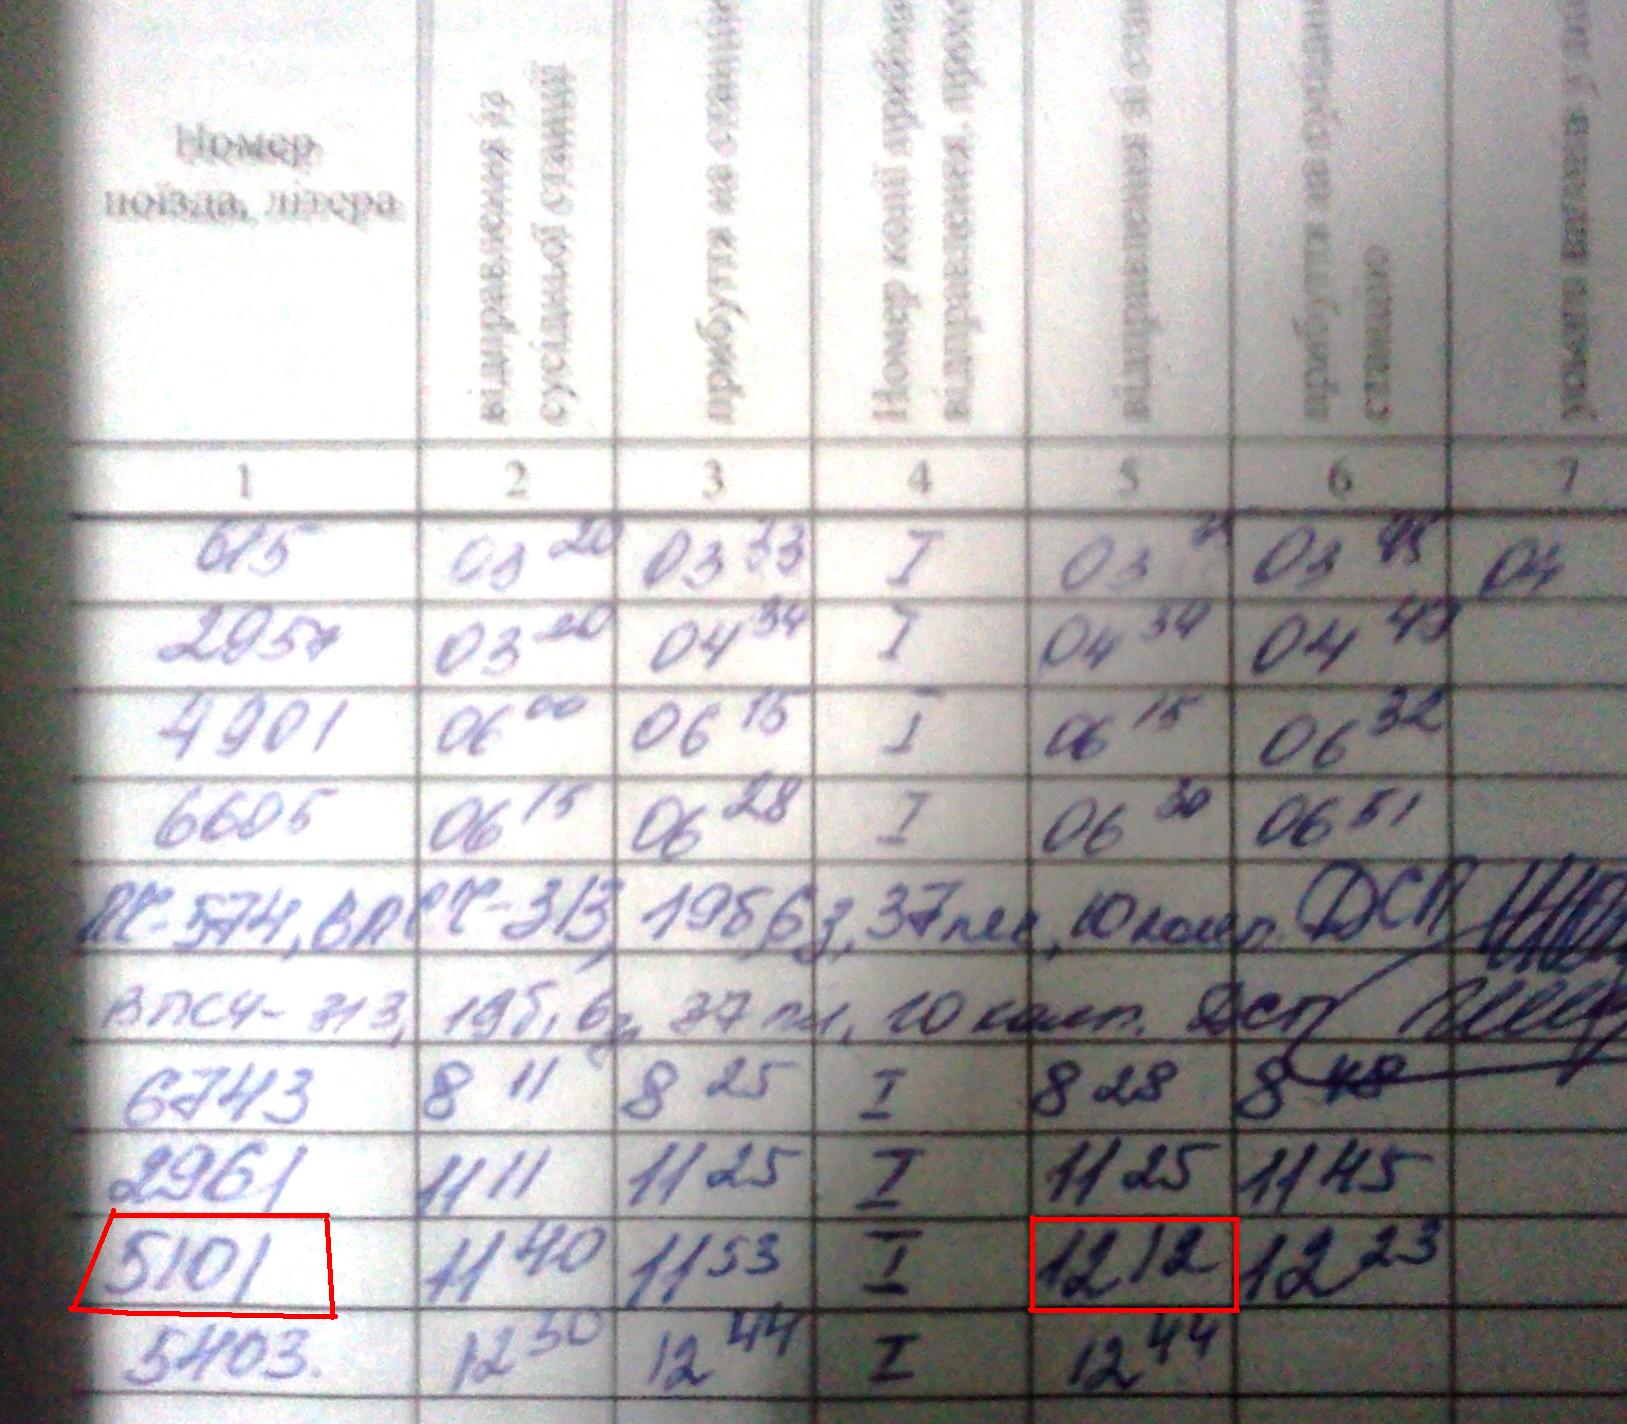 Номер
поїзда, літера
відправлення із
сусідньої станції
прибуття на станцію
Номер колії
відправлення
відправлення зі
прибуття на
станцію
1 2 3 4 5 6 7
615 03 20 03 33 I 03 03 45 04
2957 03 20 04 34 I 04 34 04 49
4901 06 00 06 15 I 06 15 06 32
6605 06 15 06 28 I 06 30 06 51
574, 313, 19б, 6з, 37пл, 10комп. ДСП
ВПСЧ-313, 19б, 6з, 37 пл, 10 комп. ДСП
6743 8 11 8 25 I 8 28 8 48
2961 11 11 11 25 I 11 25 11 45
5101 11 40 11 53 I 12 12 12 23
5403. 12 30 12 44 I 12 44